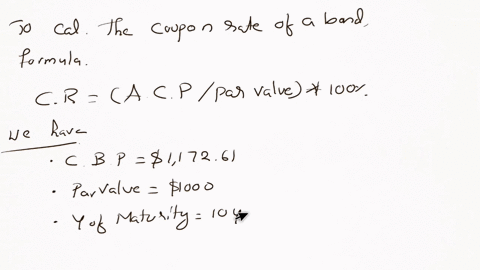 To cal. The coupon rate of a bond
formula.
C.R = (A.C.P / par value) * 100%.
we have
• C. B P = $1,172.61
• Par value = $1000
• Y of Maturity = 10